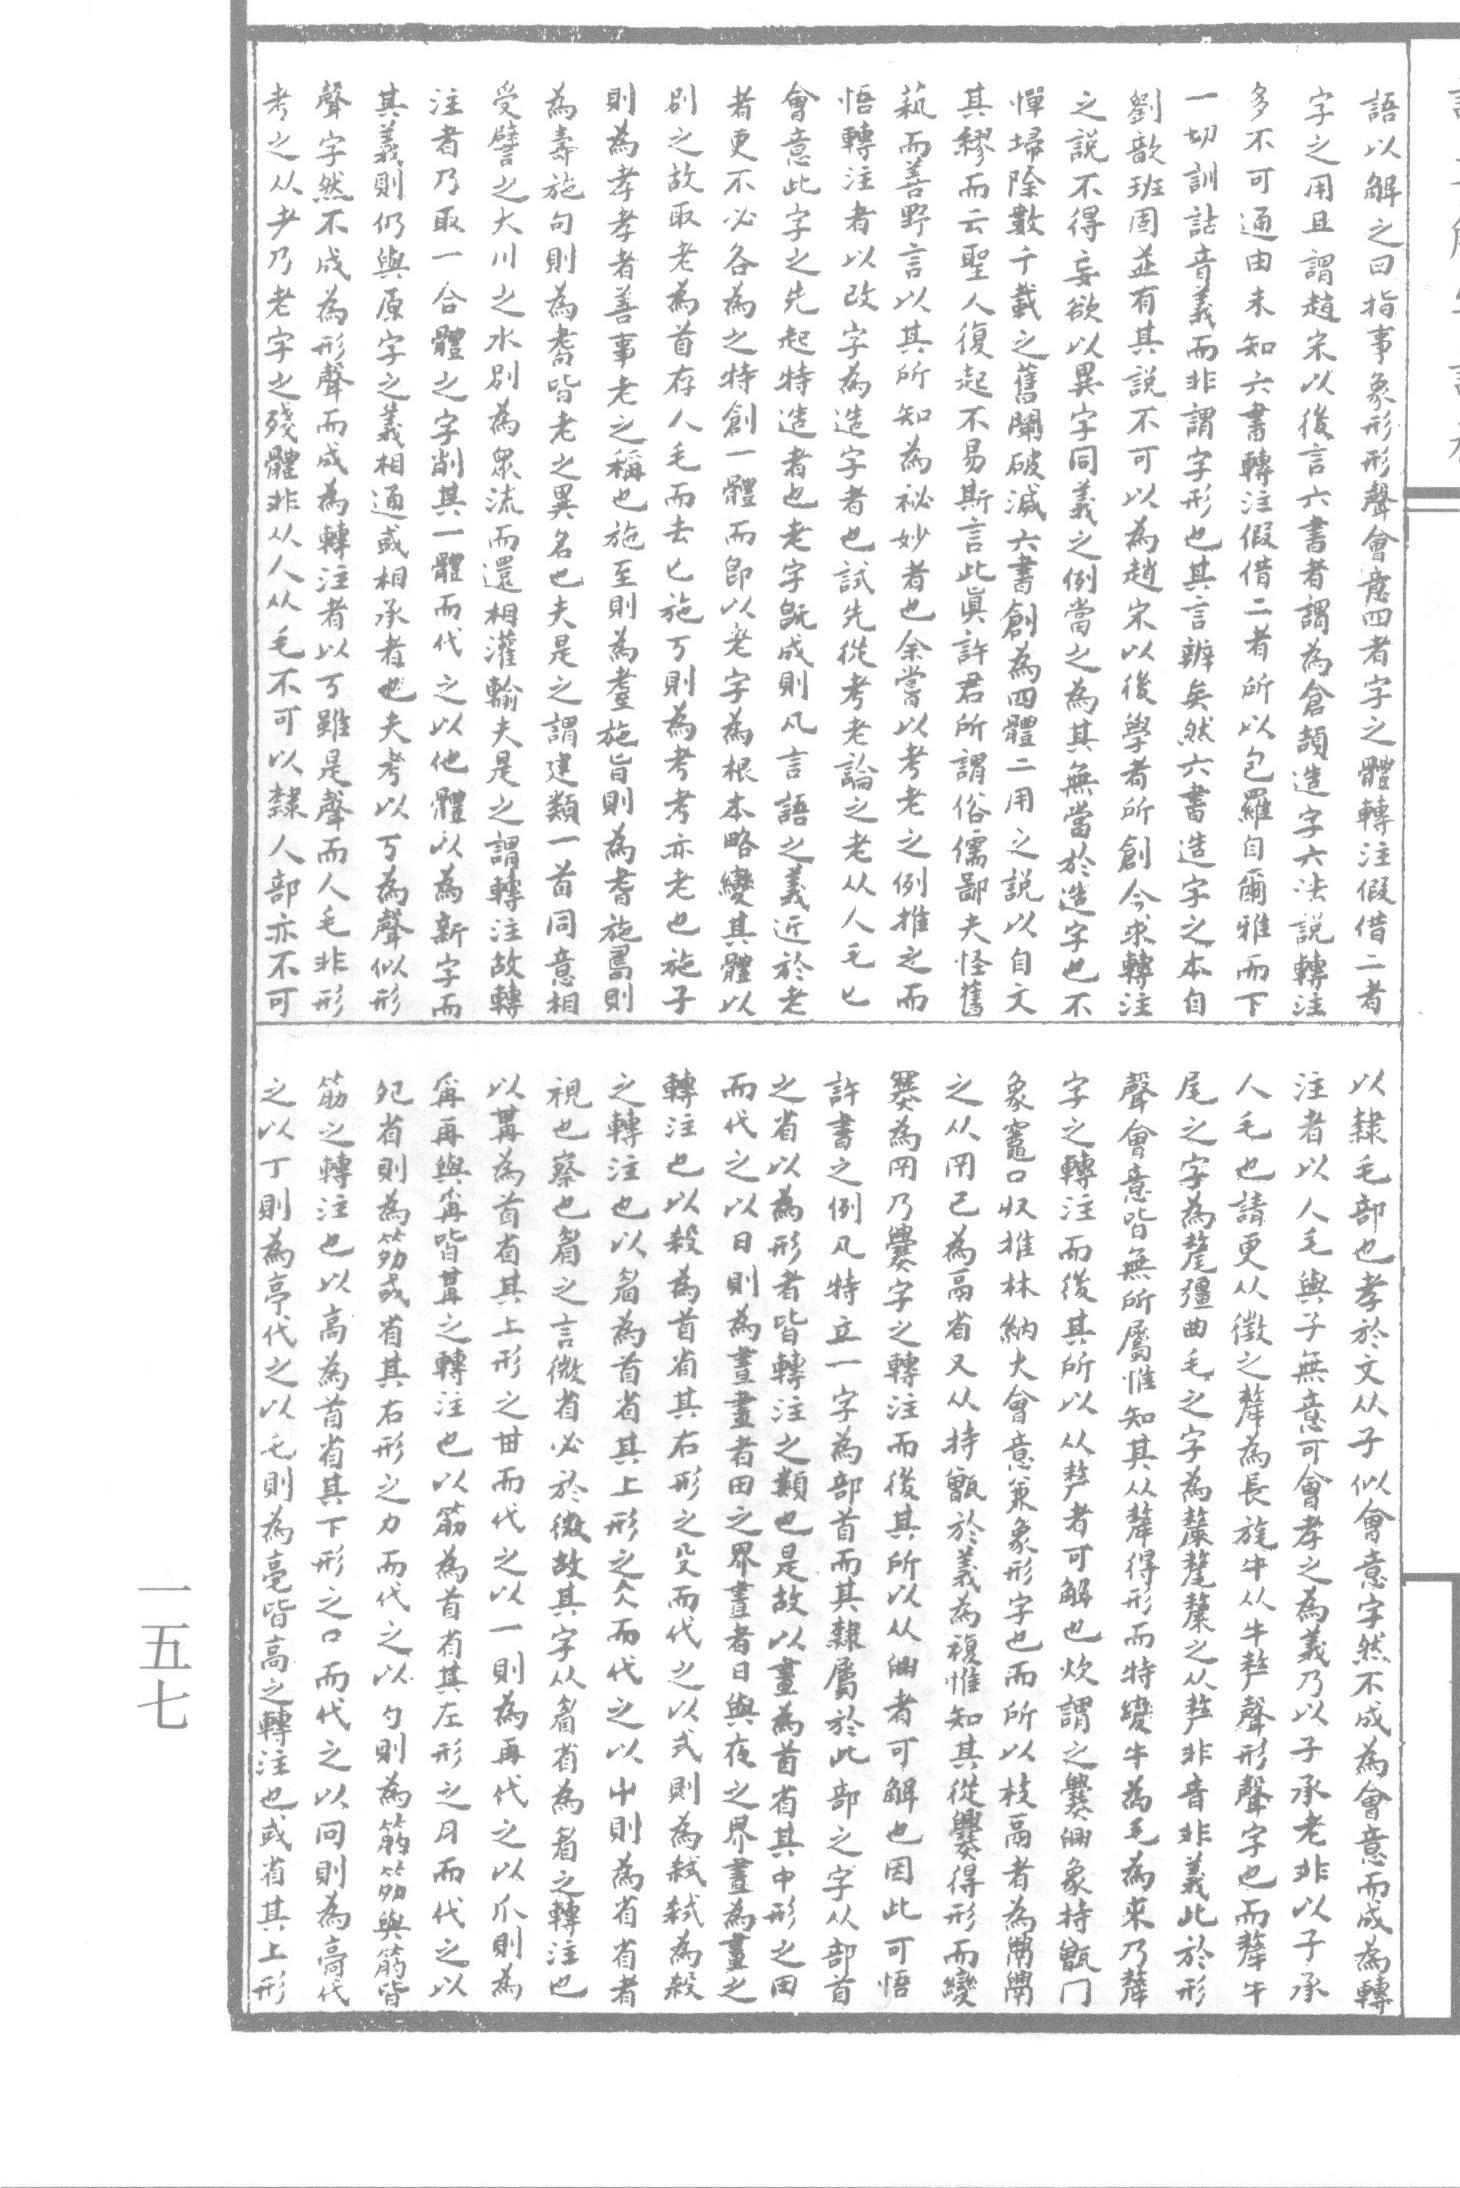 語以解之曰指事象形形聲會意四者字之體轉注假借二者
字之用且謂趙宋以後言六書者謂為倉頡造字六法說轉注
多不可通由未知六書轉注假借二者所以包羅自爾雅而下
一切訓詁音義而非謂字形也其言辨矣然六書造字之本自
劉歆班固並有其說不可以為趙宋以後學者所創今求轉注
之說不得妄欲以異字同義之例當之為其無當於造字也不
憚埽除數千載之舊闡破滅六書創為四體二用之說以自文
其繆而云聖人復起不易斯言此眞許君所謂俗儒鄙夫怪舊
蓺而善野言以其所知為祕妙者也余嘗以考老之例推之而
悟轉注者以改字為造字者也試先從考老論之老从人毛匕
會意此字之先起特造者也老字既成則凡言語之義近於老
者更不必各為之特創一體而即以老字為根本略變其體以
別之故取老為首存人毛而去匕施丂則為考考亦老也施子
則為孝孝者善事老之稱也施至則為耋施旨則為耆施𠷎則
為壽施句則為耇皆老之異名也夫是之謂建類一首同意相
受譬之大川之水別為眾流而還相灌輸夫是之謂轉注故轉
注者乃取一合體之字削其一體而代之以他體以為新字而
其義則仍與原字之義相通或相承者也夫考以丂為聲似形
聲字然不成為形聲而成為轉注者以丂雖是聲而人毛非形
考之从耂乃老字之殘體非从人从毛不可以隸人部亦不可
以隸毛部也孝於文从子似會意字然不成為會意而成為轉
注者以人毛與子無意可會孝之為義乃以子承老非以子承
人毛也請更从徵之犛為長旄牛从牛𠩺聲形聲字也而犛牛
尾之字為氂彊曲毛之字為斄氂斄之从𠩺非音非義此於形
聲會意皆無所屬惟知其从犛得形而特變牛為毛為來乃犛
字之轉注而後其所以从𠩺者可解也炊謂之爨𦥑象持甑冂
象竈口収推林納火會意兼象形字也而所以枝鬲者為𩰫𩰫
之从𦥑已為鬲省又从持甑於義為複惟知其從爨得形而變
爨為𦥑乃爨字之轉注而後其所以从𦥑者可解也因此可悟
許書之例凡特立一字為部首而其隸屬於此部之字从部首
之省以為形者皆轉注之類也是故以畫為首省其中形之田
而代之以日則為晝畫者田之界晝者日與夜之界晝為畫之
轉注也以殺為首省其右形之殳而代之以式則為弒弒為殺
之轉注也以眉為首省其上形之仌而代之以屮則為省省者
視也察也眉之言微省必於微故其字从眉省為眉之轉注也
以冓為首省其上形之冉而代之以一則為再代之以爪則為
爯再與爯皆冓之轉注也以筋為首省其左形之月而代之以
夗省則為笏或省其右形之力而代之以勺則為筋笏與筋皆
筋之轉注也以高為首省其下形之口而代之以冋則為高代
之以丁則為亭代之以乇則為亳皆高之轉注也或省其上形
一五七